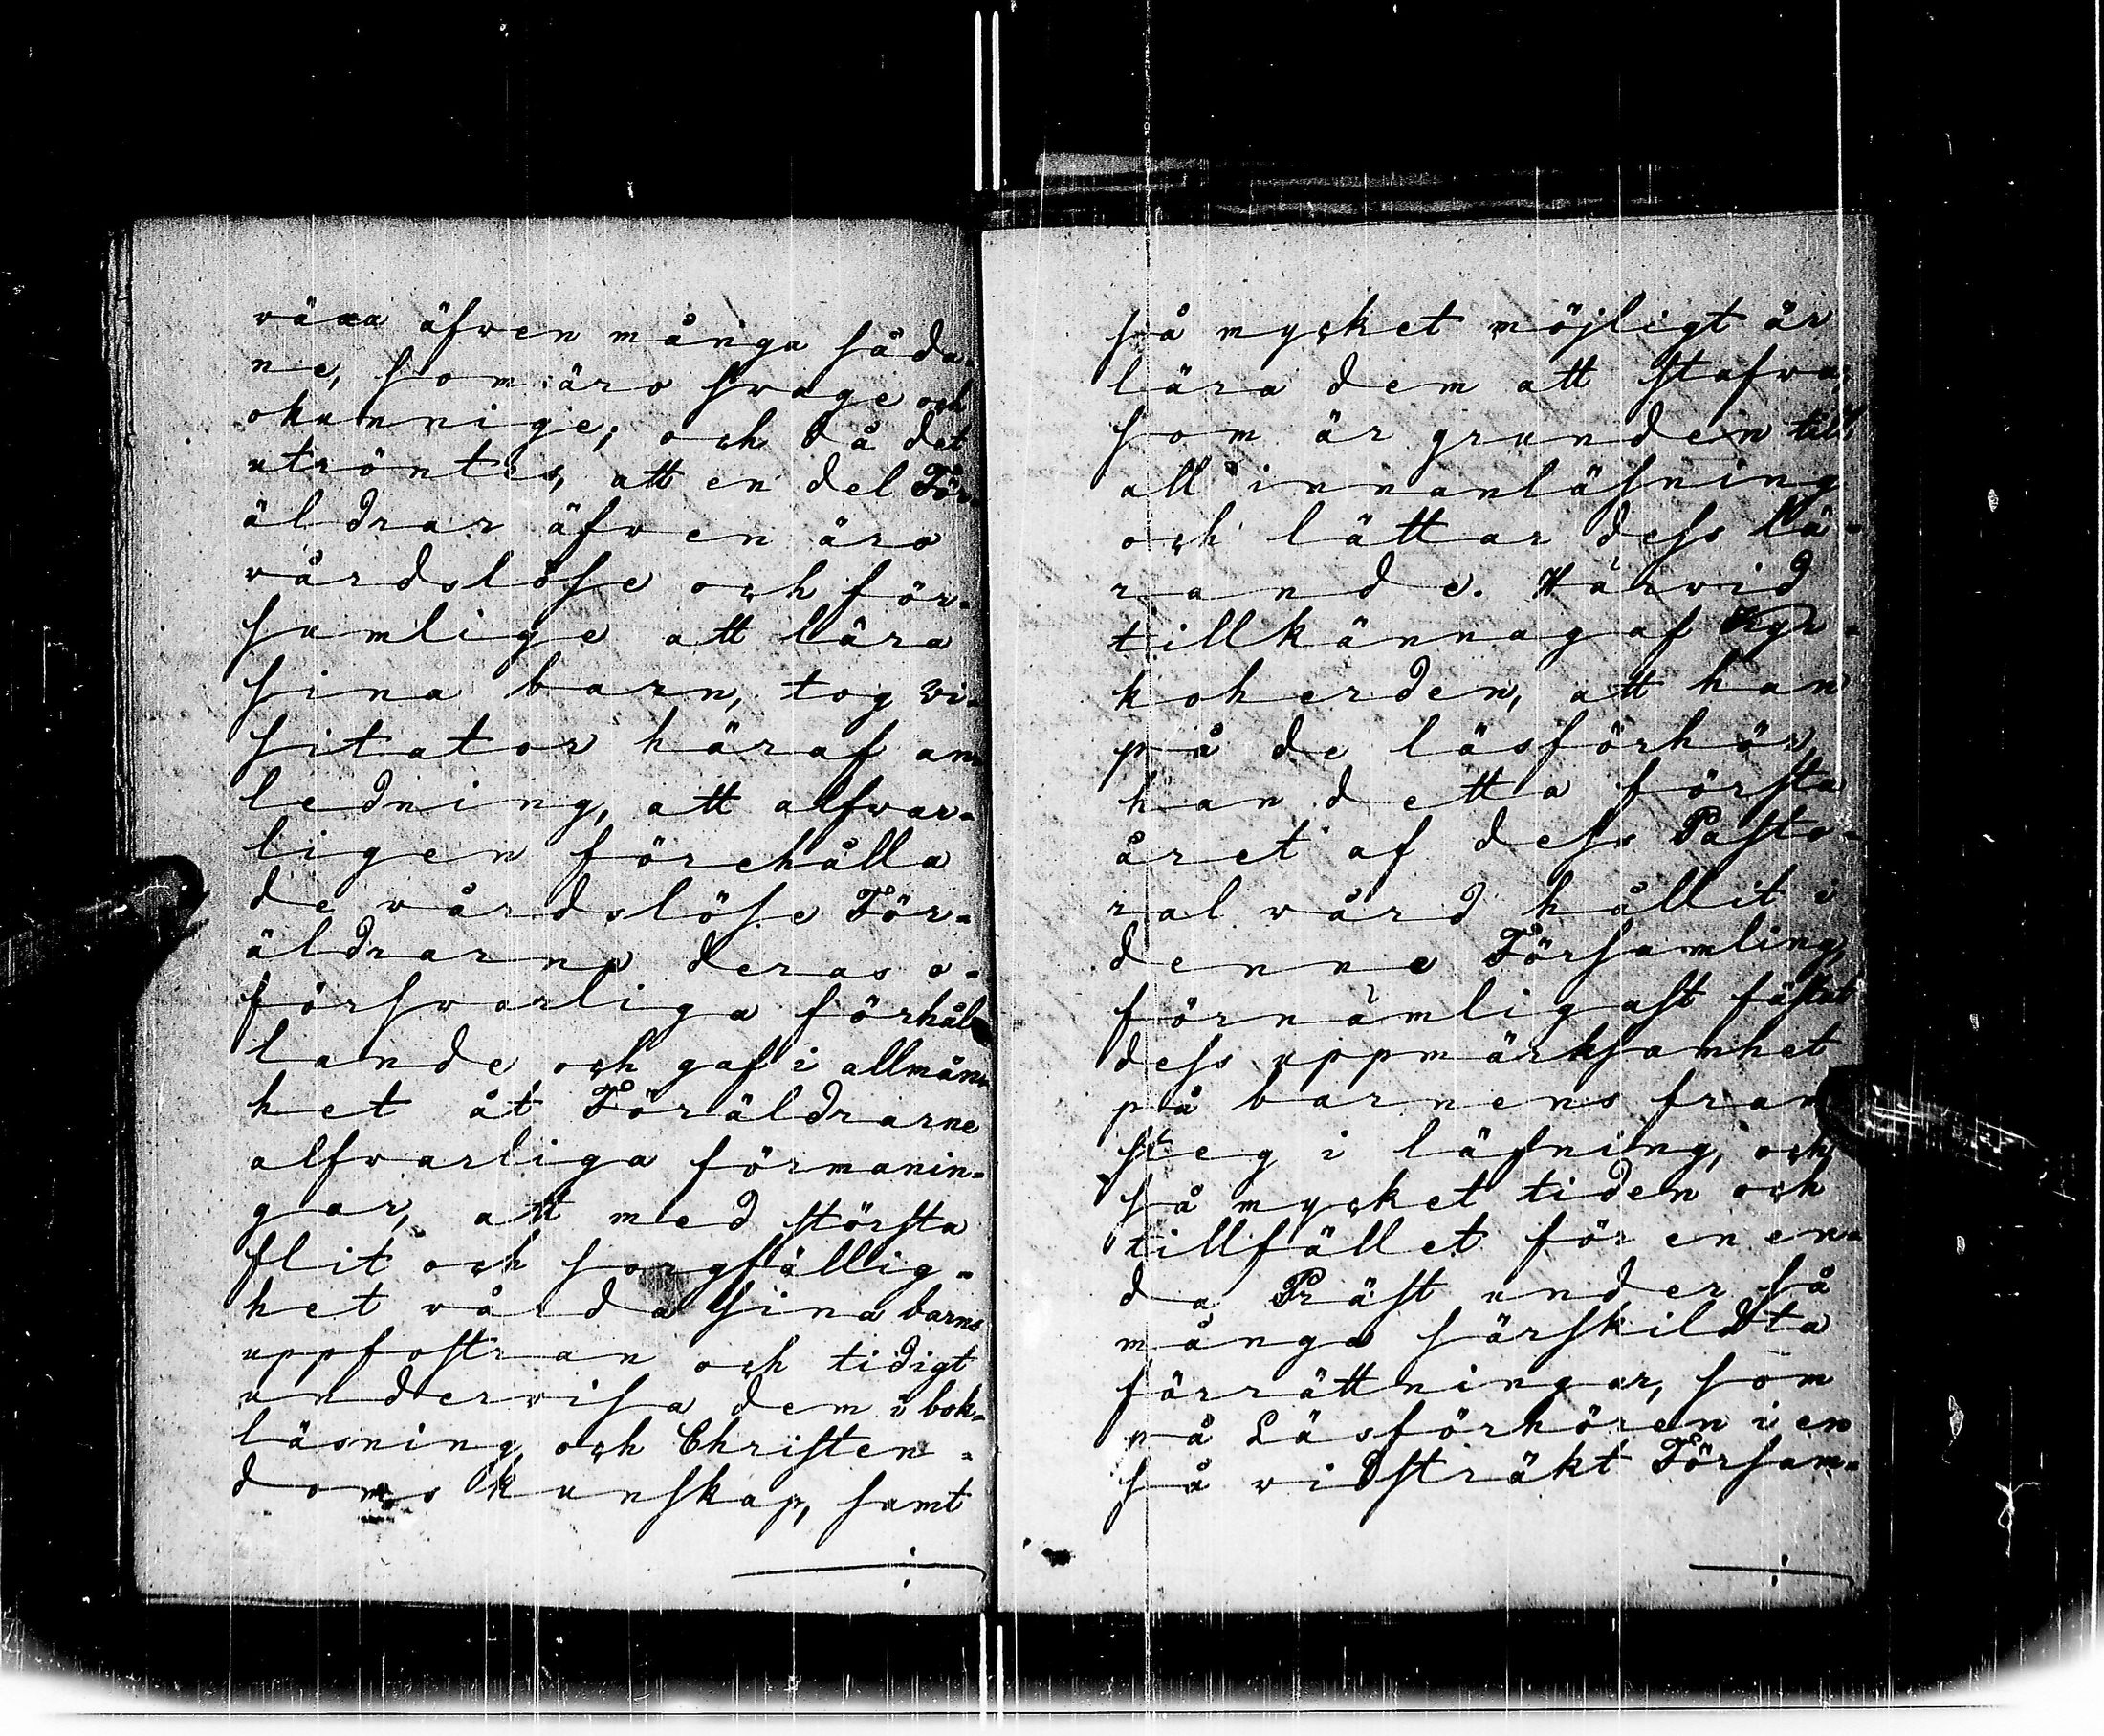 wäxa äfwen många såda-
ne, som äro swage och
okunnige; och då det
utröntes, att en del För-
äldrar äfwen äro
wårdslöse och för-
sumlige att lära
sina barn, tog Vi-
sitator häraf an-
ledning, att alfwar-
ligen förehålla
de wårdslöse För-
äldrarne deras o-
förswarliga förhål-
lande och gaf i allmän-
het åt Föräldrarne
alfwarliga förmanin-
gar, att med största
flit och sorgfällig-
het wårda sina barns
uppfostran och tidigt
underwisa dem i bok-
läsning och Christen-
doms kunskap, samt
så mycket möjligt är
lära dem att stafwa,
som är grunden till
all innanläsning
och lättar dess lä-
rande. Härwid
tillkännagaf Kyr-
koherden, att han
på de läsförhör,
han detta första
året af dess Pasto-
ral wård hållit i
denne Församling,
förnämligast fästat
dess uppmärksamhet
på barnens fram-
steg i läsning, och
så mycket tiden och
tillfället för en en-
da Präst under så
många särskildta
förrättningar, som
på Läsförhören i en
så widsträkt Försam-